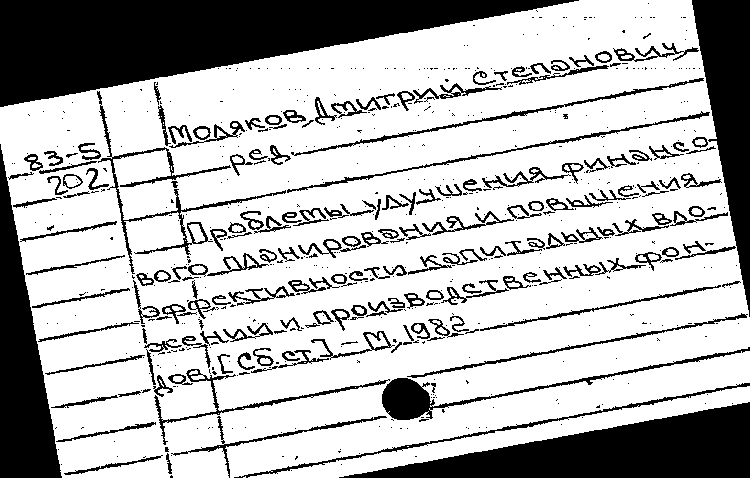 Моляков, Дмитрий Степанович,
83-5
ред.
202
Проблемы улучшения финансо-
вого планирования и повышения
эффективности капитальных вло-
жений и производственных фон-
дов: [Сб. ст.] - М, 1982